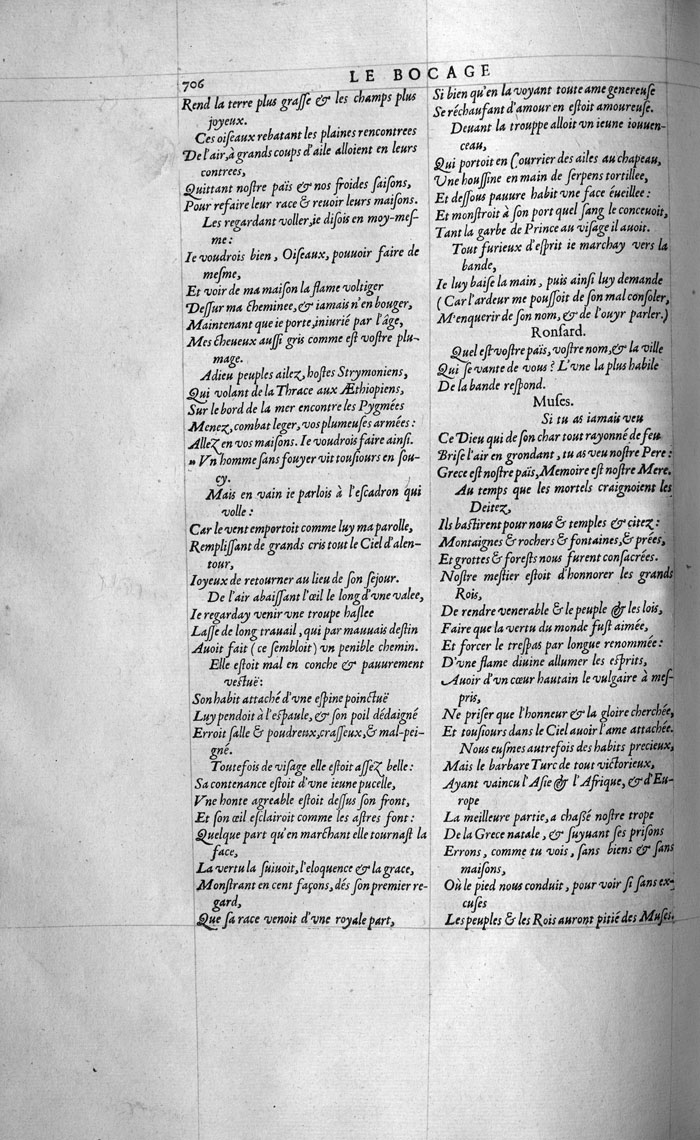 706
LE BOCAGE
Rend la terre plus graſſe & les champs plus
joyeux.
Ces oiſeaux rebatant les plaines rencontrees
De l'air, à grands coups d'aile alloient en leurs
contrees,
Quittant noſtre païs & nos froides ſaiſons,
Pour refaire leur race & reuoir leurs maiſons.
Les regardant voller, ie diſois en moy-meſ-
me:
Ie voudrois bien, Oiſeaux, pouuoir faire de
meſme,
Et voir de ma maiſon la flame voltiger
Deſſur ma cheminee, & iamais n'en bouger,
Maintenant que ie porte, iniurié par l'âge,
Mes cheueux auſſi gris comme eſt voſtre plu-
mage.
Adieu peuples ailez, hoſtes Strymoniens,
Qui volant de la Thrace aux Æthiopiens,
Sur le bord de la mer encontre les Pygmées
Menez, combat leger, vos plumeuſes armées:
Allez en vos maiſons. Ie voudrois faire ainſi.
" Vn homme ſans fouyer vit touſiours en ſou-
cy.
Mais en vain ie parlois à l'eſcadron qui
volle:
Car le vent emportoit comme luy ma parolle,
Rempliſſant de grands cris tout le Ciel d'alen-
tour,
Ioyeux de retourner au lieu de ſon ſejour.
De l'air abaiſſant l'œil le long d'vne valee,
Ie regarday venir vne troupe haſlee
Laſſe de long trauail, qui par mauuais deſtin
Auoit fait (ce ſembloit) vn penible chemin.
Elle eſtoit mal en conche & pauurement
veſtuë:
Son habit attaché d'vne eſpine poinctuë
Luy pendoit à l'eſpaule, & ſon poil dédaigné
Erroit ſalle & poudreux, craſſeux, & mal-pei-
gné.
Toutefois de viſage elle eſtoit aſſez belle:
Sa contenance eſtoit d'vne ieune pucelle,
Vne honte agreable eſtoit deſſus ſon front,
Et ſon œil eſclairoit comme les aſtres font:
Quelque part qu'en marchant elle tournaſt la
face,
La vertu la ſuiuoit, l'eloquence & la grace,
Monſtrant en cent façons, dés ſon premier re-
gard,
Que ſa race venoit d'vne royale part,
Si bien qu'en la voyant toute ame genereuſe
Se réchaufant d'amour en eſtoit amoureuſe.
Deuant la trouppe alloit vn ieune iouuen-
ceau,
Qui portoit en Courrier des ailes au chapeau,
Vne houſſine en main de ſerpens tortillee,
Et deſſous pauure habit vne face éueillee:
Et monſtroit à ſon port quel ſang le conceuoit,
Tant la garbe de Prince au viſage il auoit.
Tout furieux d'eſprit ie marchay vers la
bande,
Ie luy baiſe la main, puis ainſi luy demande
(Car l'ardeur me pouſſoit de ſon mal conſoler,
M'enquerir de ſon nom, & de l'ouyr parler.)
Ronſard.
Quel eſt voſtre païs, voſtre nom, & la ville
Qui ſe vante de vous? L'vne la plus habile
De la bande reſpond.
Muſes.
Si tu as iamais veu
Ce Dieu qui de ſon char tout rayonné de feu
Briſe l'air en grondant, tu as veu noſtre Pere:
Grece eſt noſtre païs, Memoire eſt noſtre Mere.
Au temps que les mortels craignoient les
Deitez,
Ils baſtirent pour nous & temples & citez:
Montaignes & rochers & fontaines, & prées,
Et grottes & foreſts nous furent conſacrées.
Noſtre meſtier eſtoit d'honnorer les grands
Rois,
De rendre venerable & le peuple & les lois,
Faire que la vertu du monde fuſt aimée,
Et forcer le treſpas par longue renommée:
D'vne flame diuine allumer les eſprits,
Auoir d'vn cœur hautain le vulgaire à meſ-
pris,
Ne priſer que l'honneur & la gloire cherchée,
Et touſiours dans le Ciel auoir l'ame attachée.
Nous euſmes autrefois des habits precieux,
Mais le barbare Turc de tout victorieux,
Ayant vaincu l'Aſie & l'Afrique, & d'Eu-
rope
La meilleure partie, a chaßé noſtre trope
De la Grece natale, & ſuyuant ſes priſons
Errons, comme tu vois, ſans biens & ſans
maiſons,
Où le pied nous conduit, pour voir ſi ſans ex-
cuſes
Les peuples & les Rois auront pitié des Muſes.